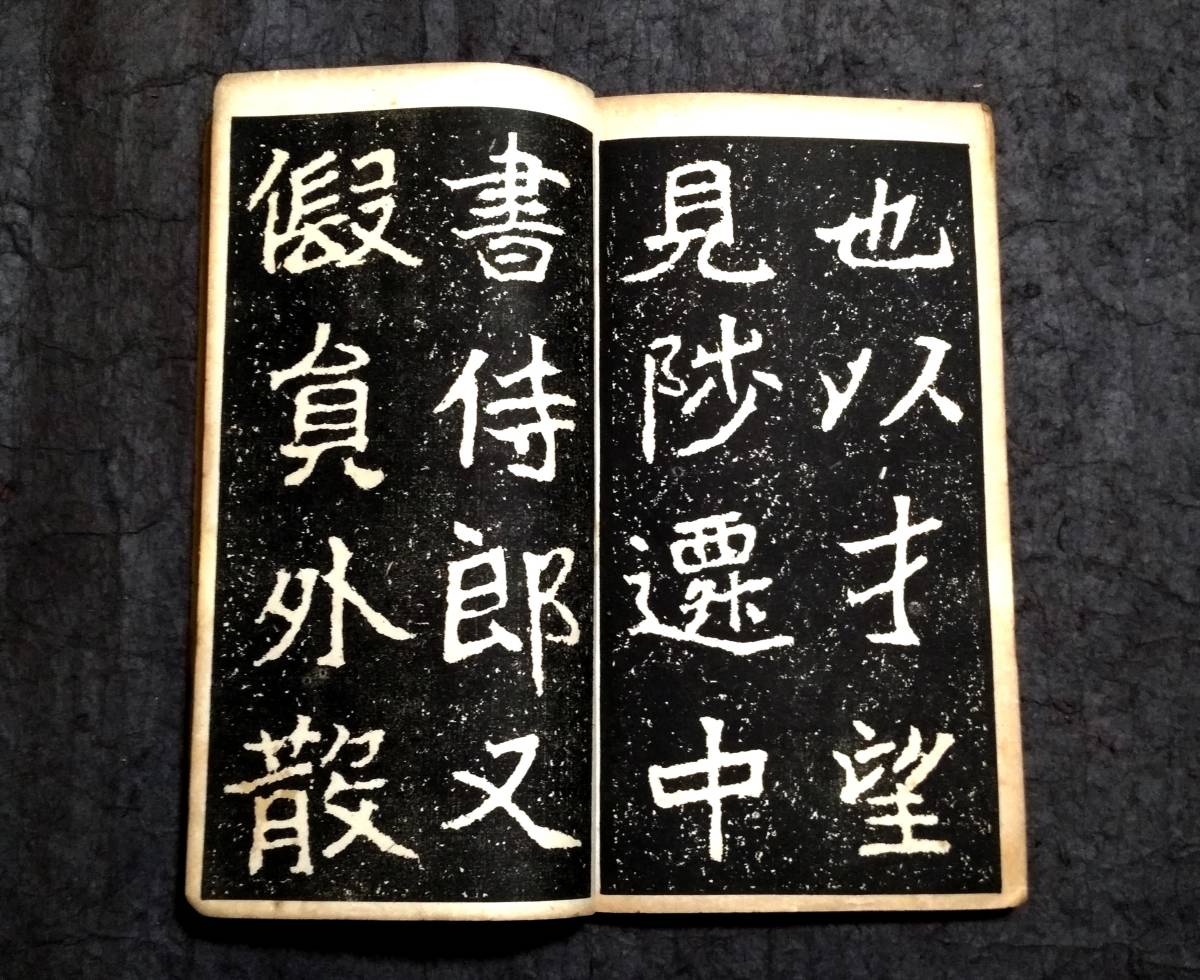 也以才望
見陟遷中
書侍郎又
假貟外散